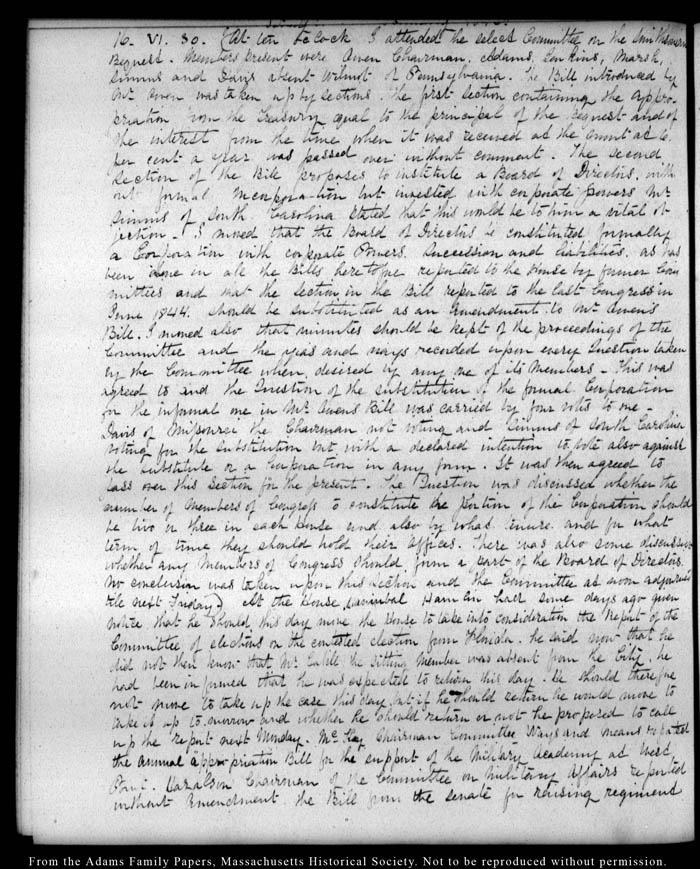 16. VI. 30. At ten o'clock I attended the select Committee on the Smithsonian
Bequest. Members present were Owen Chairman, Adams, Jenkins, Marsh,
Simms and Davis absent Wilmot of Pennsylvania. The Bill introduced by
Mr Owen was taken up by sections. The first section containing the appro-
priation from the Treasury equal to the principal of the bequest and of
the interest from the time when it was received at the amount at 6.
per cent a year was passed over without comment. The second
section of the Bill proposes to institute a Board of Directors, with
out formal incorporation but invested with corporate powers Mr
Simms of South Carolina stated that this would be to him a vital ob
jection. I moved that the Board of Directors be constituted formally
a Corporation with corporate Powers, Succession and liabilities, as has
been done in all the Bills heretofore reported to the House by former Com
mittees and that the section in the Bill reported to the last Congress in
June 1844. should be substituted as an amendment to Mr Owen's
Bill. I moved also that minutes should be kept of the proceedings of the
Committee and the yeas and nays recorded upon every Question taken
by the Committee when desired by any one of its Members - This was
agreed to and the Question of the substitution of the formal Corporation
for the informal one in Mr. Owens Bill was carried by four votes to one -
Davis of Missouri the Chairman not voting and Simms of South Carolina
voting for the substitution but with a declared intention to vote also against
the substitute or a Corporation in any form. It was then agreed to
pass over this section for the present. The Question was discussed whether the
number of Members of Congress to constitute the portion of the Corporation should
be two or three in each House and also by what tenure and for what
term of time they should hold their offices. There was also some discussion
whether any Members of Congress should form a part of the Board of Directors.
No conclusion was taken upon this section and the Committee at noon adjourned
till next Friday. At the House Hannibal Hamlin had some days ago given
notice that he should this day move the House to take into consideration the Report of the
Committee of elections on the contested election from Florida. he said now that he
did not then know that Mr. Cabell the sitting Member was absent from the City. he
had been informed that he was expected to return this day. he should therefore
not move to take up the case this day but if he should return he would move to
take it up to-morrow and whether he should return or not he proposed to call
up the report next Monday. McKay Chairman Committee Ways and means reported
the annual appropriation Bill for the support of the Military Academy at West
Point. Haralson Chairman of the Committee on Military Affairs reported
without Amendment the Bill from the Senate for raising regiment
From the Adams Family Papers, Massachusetts Historical Society. Not to be reproduced without permission.